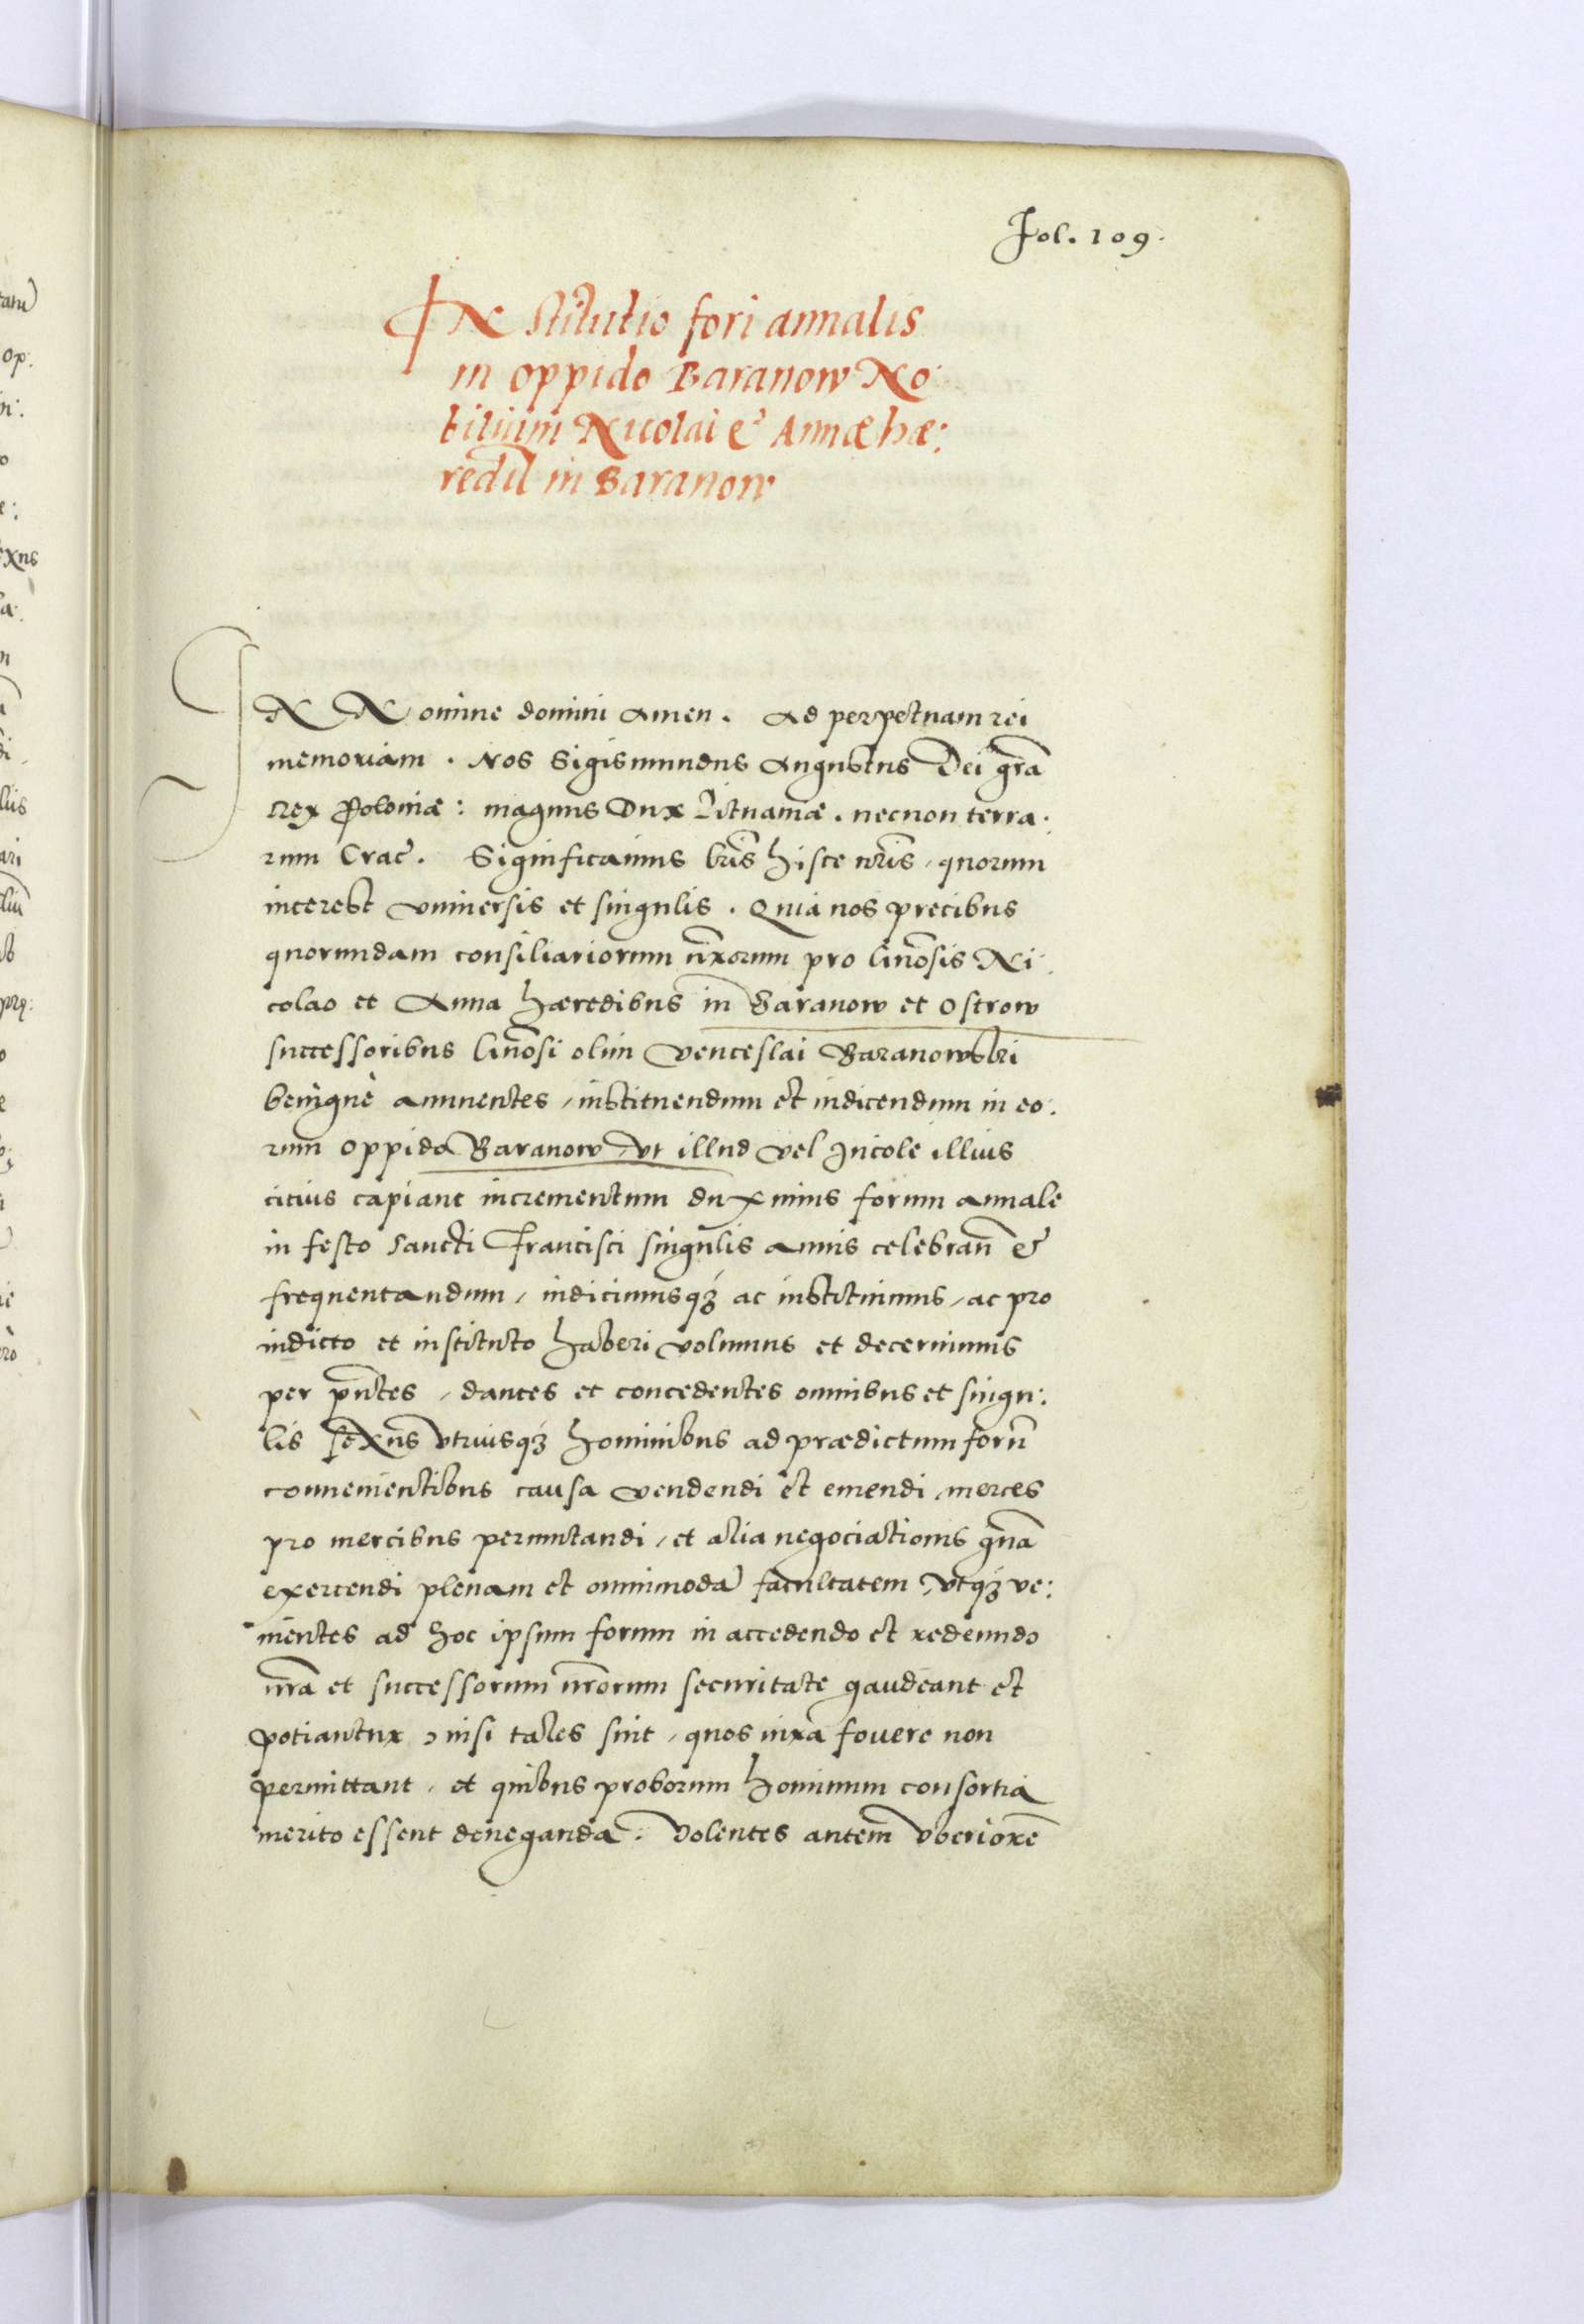 Fol. 109.
INstitutio fori annalis
in oppido Baranow No:
bilium Nicolai & Annæ hæ:
redũ in Baranow
IN Nomine domini Amen. Ad perpetuam rei
memoriam. Nos Sigismundus Augustus Dei gr̃a
Rex Poloniæ: magnus Dux Lituaniæ. necnon terra:
rum Crac̃. Significamus lr̃is hisce nr̃is, quorum
interest vniuersis et singulis. Quia nos precibus
quorundam consiliariorum nr̃orum pro G̃nosis Ni:
colao et Anna hæredibus in Baranow et Ostrow
successoribus G̃nosi olim Venceslai Baranowski
benignè annuentes, instituendum et indicendum in eo:
rum oppido Baranow, vt illud vel Incole illius
citius capiant incrementum duximus forum annale
in festo Sancti Francisci singulis annis celebran̄ &
frequentandum, indicimusq̃ ac instituimus, ac pro
indicto et instituto haberi volumus et decernimus
per pñtes, dantes et concedentes omnibus et singu:
lis sexus vtriusq̃ hominibus ad prædictum forũ
conuenientibus causa vendendi et emendi, merces
pro mercibus permutandi, et alia negociationis gñа
exercendi plenam et omnimodã facultatem, vtq̃ ve:
nientes ad hoc ipsum forum in accedendo et redeundo
nr̃a et successorum nr̃orum securitate gaudeant et
potiantur, nisi tales sint, quos iura fouere non
permittant, et quibus proborum hominum consortia
merito essent deneganda. Volentes autem vberiorẽ